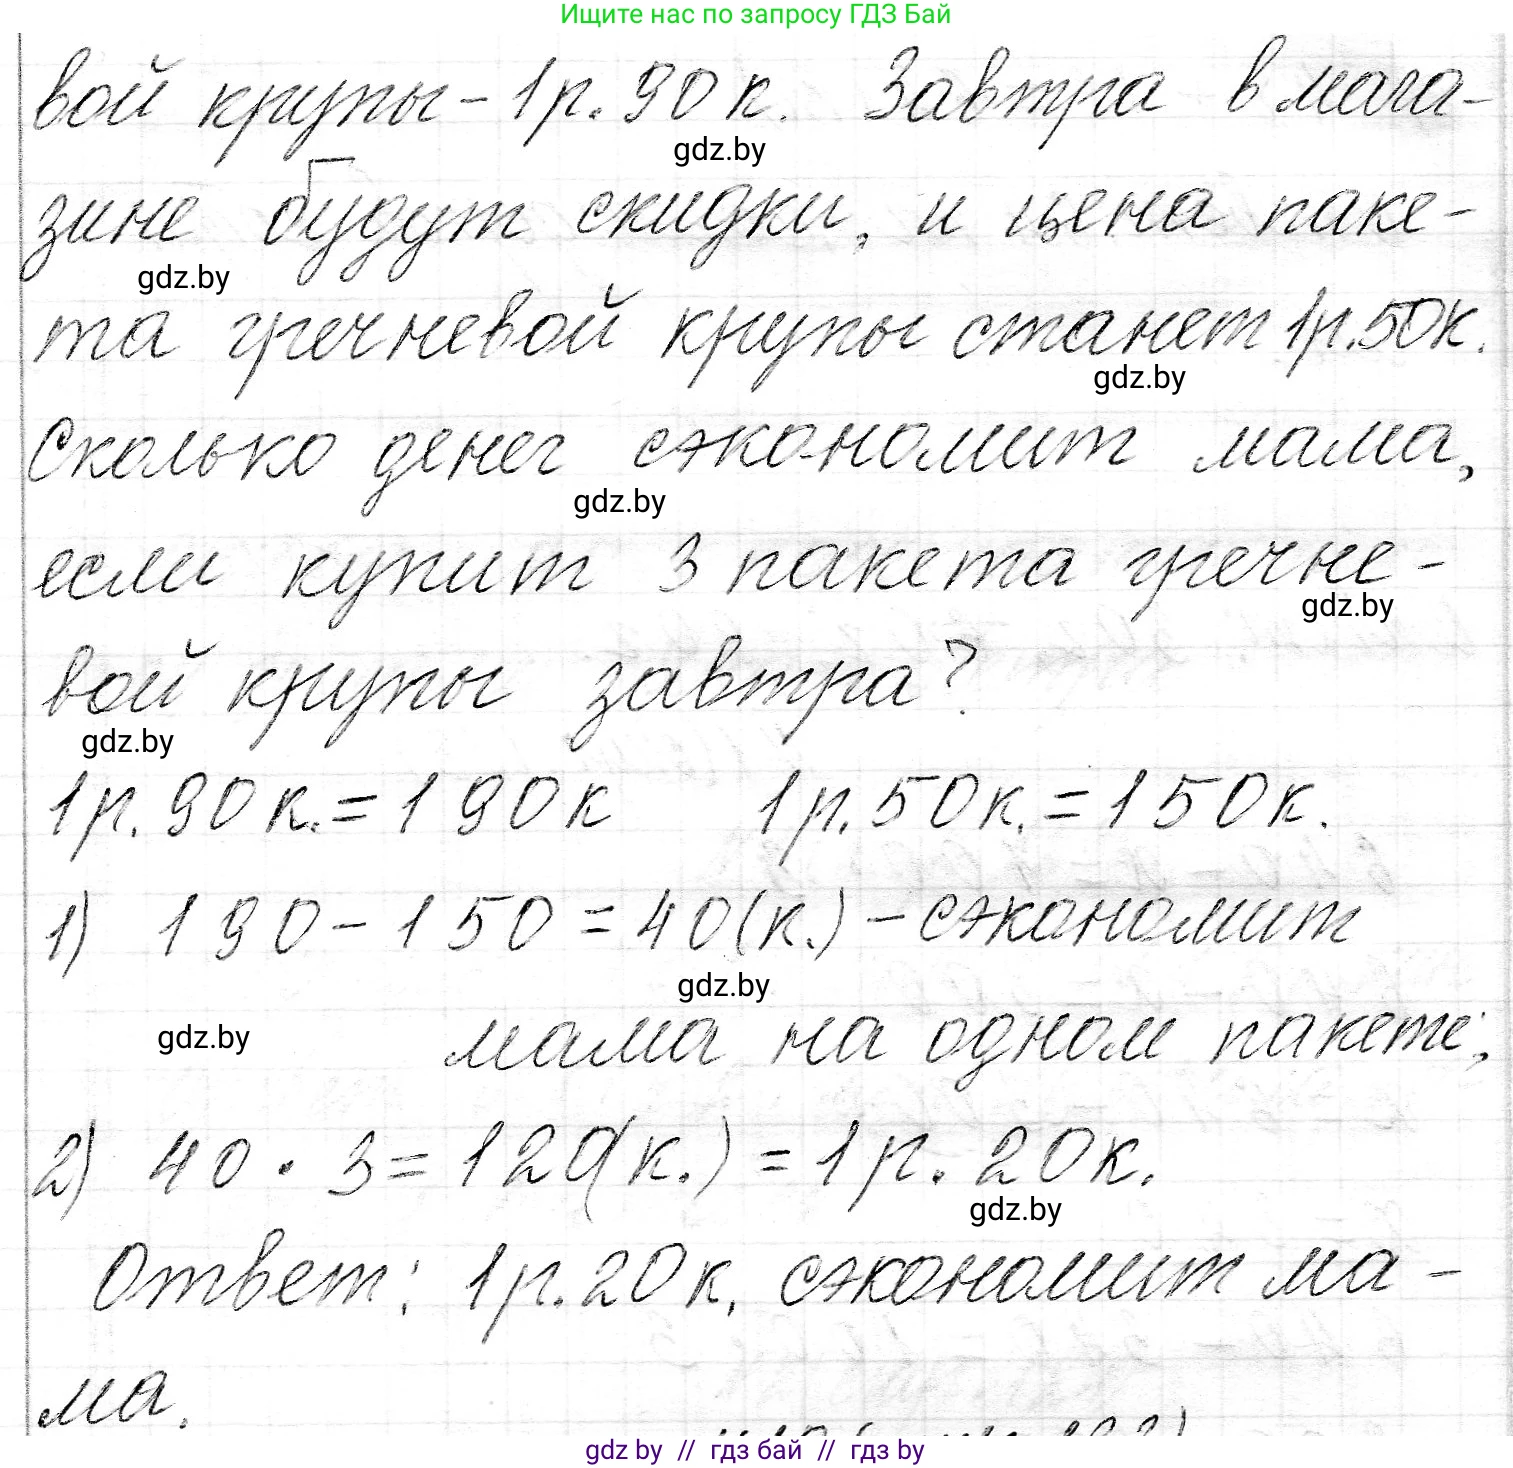 Ищите нас по запросу ГДЗ Бай
вой крупы - 1р. 90 к. Завтра в мага-
gdz.by
зине будут скидки, и цена паке-
gdz.by
та гречневой крупы станет 1р.50к.
gdz.by
Сколько денег сэкономит мама,
gdz.by
если купит 3 пакета гречне-
gdz.by
вой крупы завтра?
gdz.by
1р. 90 к. = 190к 1р. 50к. = 150к.
1) 190 - 150 = 40(к.) - сэкономит
gdz.by
gdz.by мама на одном пакете;
2) 40 · 3 = 120(к.) = 1р. 20к.
gdz.by
Ответ: 1р. 20к. сэкономит ма-
ма.
gdz by // гдз бай // гдз by